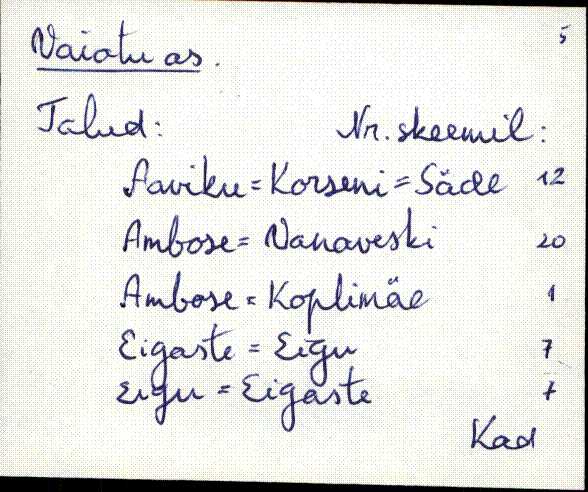 Vaiatu as. 5
Talud: Nr. skeemil:
Aaviku = Korseni = Säde 12
Ambose = Vanaveski 20
Ambose = Koplimäe 1
Eigaste = Eigu 7
Eigu = Eigaste 7
Kad